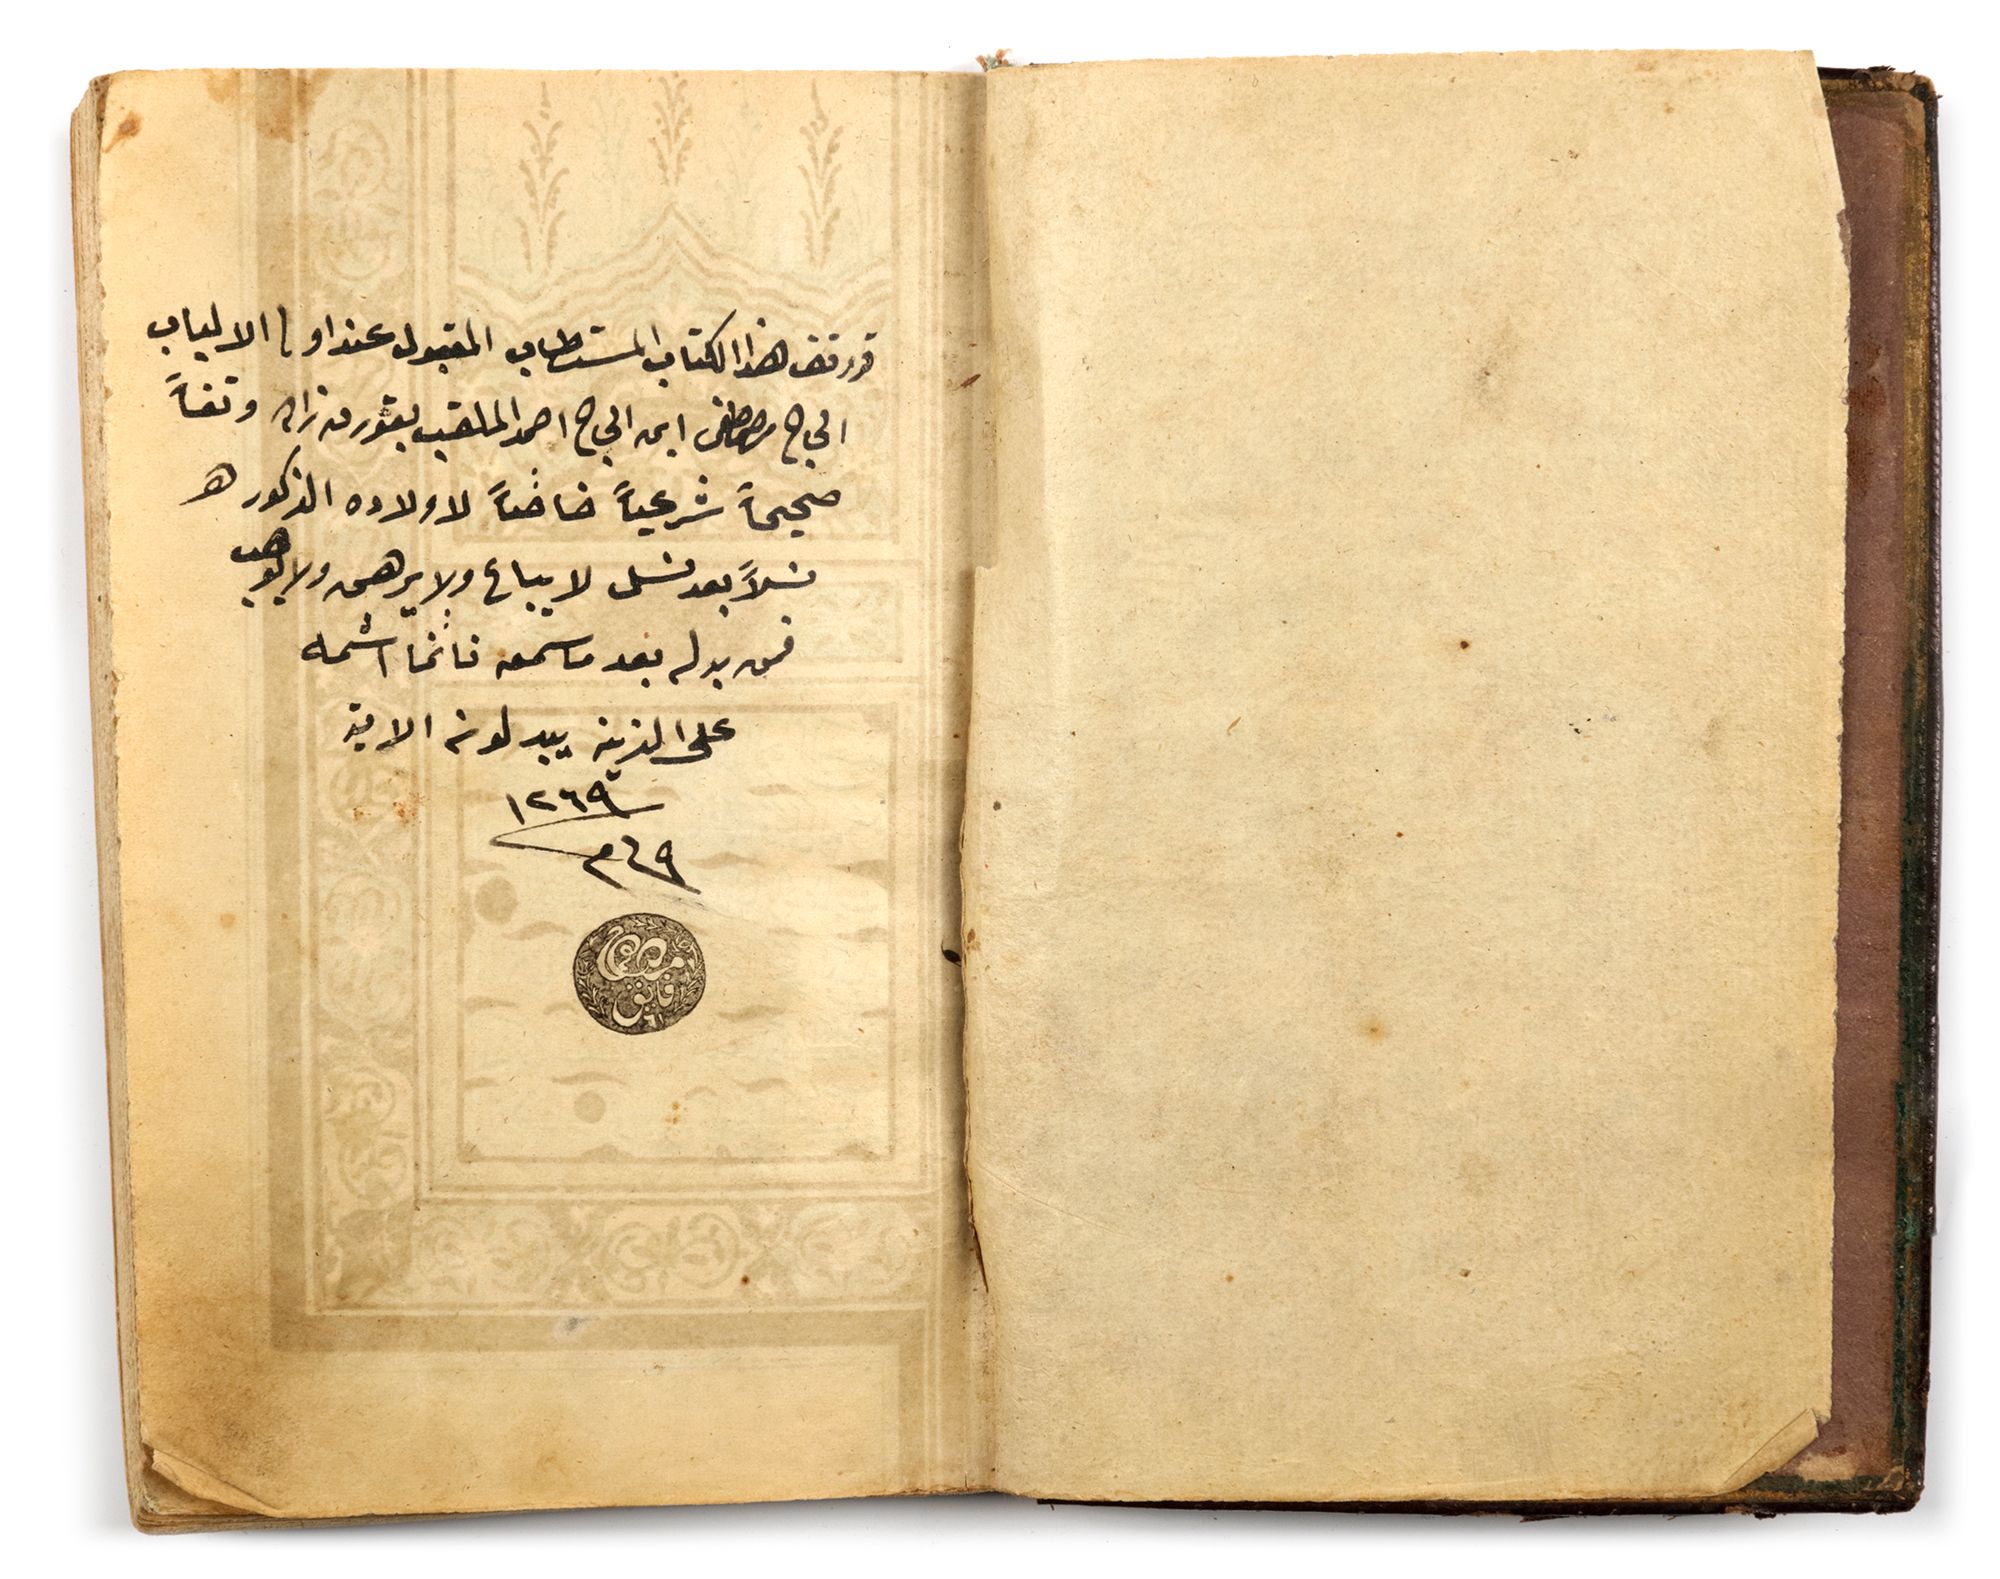 قد وقف هذا الكتاب المستطاب المقبول عند اولى الالباب
الحاج مصطفى ابن الحاج احمد الملقب وقفاً
صحيحاً شرعياً خاصاً لاولاده الذكور
نسلاً بعد نسل لا يباع ولا يرهن ولا يوهب
فمن بدله بعد ما سمعه فانما اثمه
على الذين يبدلونه الاية
١٢٦٩
٦٩
مصطفى
فائق
٦١